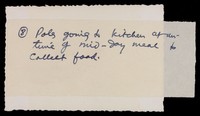 ⑧ Pols going to kitchen at
time of mid-day meal to
collect food.